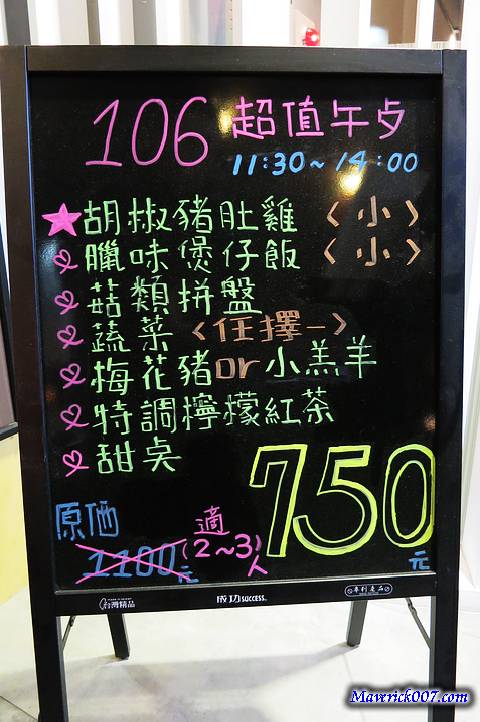 106 超值午夕
11:30~14:00
胡椒豬肚雞〈小〉
臘味煲仔飯〈小〉
菇類拼盤
蔬菜〈任擇一〉
梅花豬or小羔羊
特調檸檬紅茶
甜点
750元
原価
1100元
適(2~3)人
台灣精品
成功 SUCCESS.
專利產品
Maverick007.com